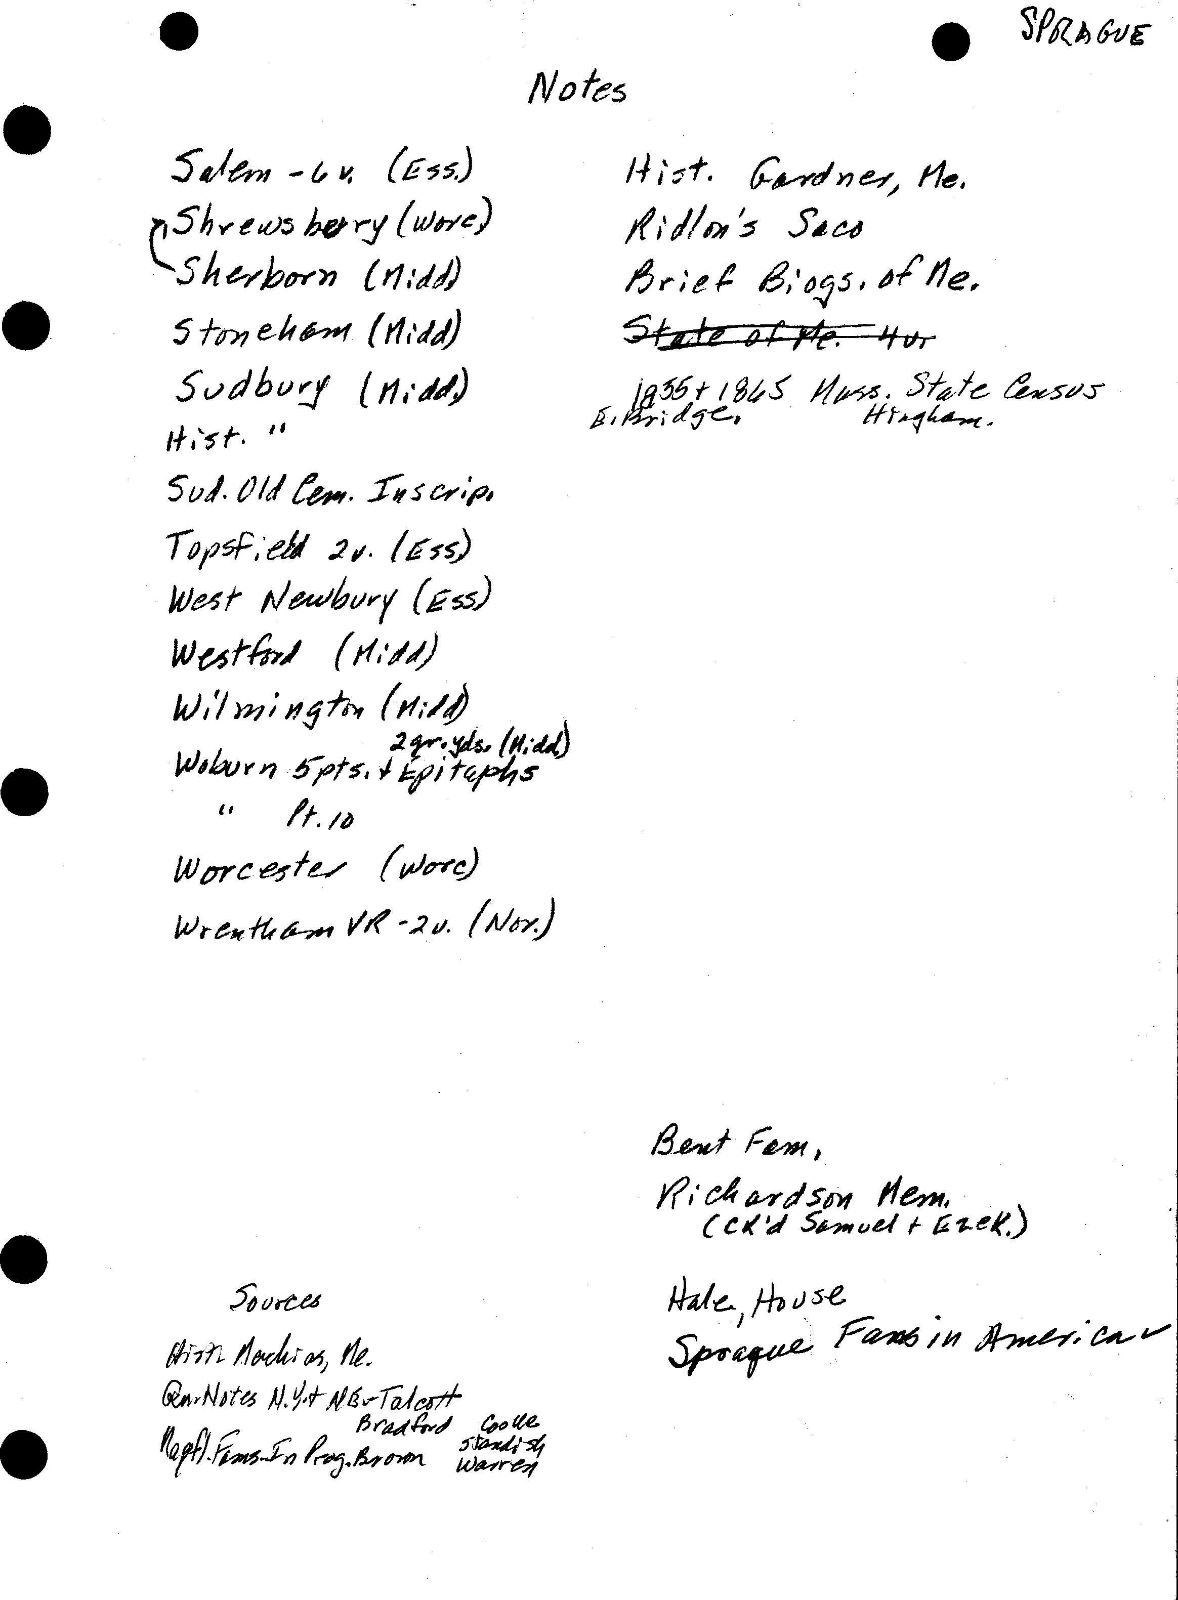 SPRAGUE
Notes
Salem - 6 v. (Ess.)
Shrewsberry (Worc)
Sherborn (Midd)
Stoneham (Midd)
Sudbury (Midd.)
Hist. "
Sud. Old Cem. Inscrip.
Topsfield 2 v. (Ess)
West Newbury (Ess)
Westford (Midd)
Wilmington (Midd)
2 gr. yds. (Midd.)
Woburn 5 pts. + Epitaphs
" Pt. 10
Worcester (Worc)
Wrentham VR - 2 v. (Nor.)
Hist. Gardner, Me.
Ridlon's Saco
Brief Biogs. of Me.
State of Me. 4 v.
1855 + 1865 Mass. State Census
E. Bridge. Hingham.
Bent Fam.
Richardson Mem.
(ck'd Samuel + Ezek.)
Hale, House
Sprague Fams in America ✓
Sources
Hist. Machias, Me.
Notes N.Y. + N.E. - Talcott
Bradford Cooke
Standish
Mayfl. Fams. In Prog. Brown Warren